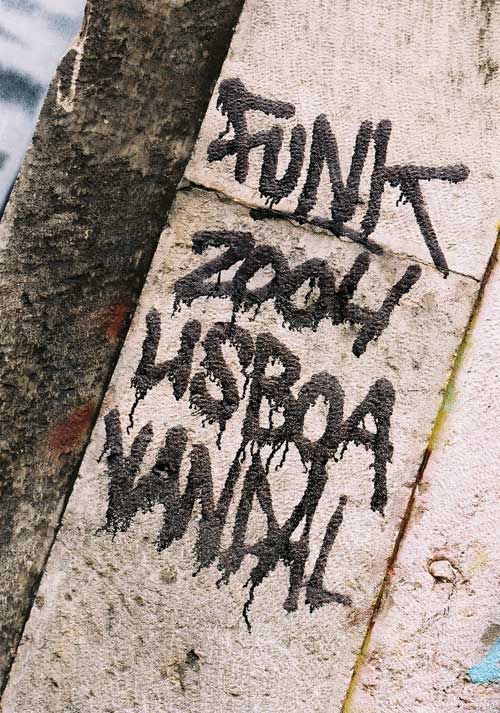 FUNK
2004
LISBOA
VANDAL